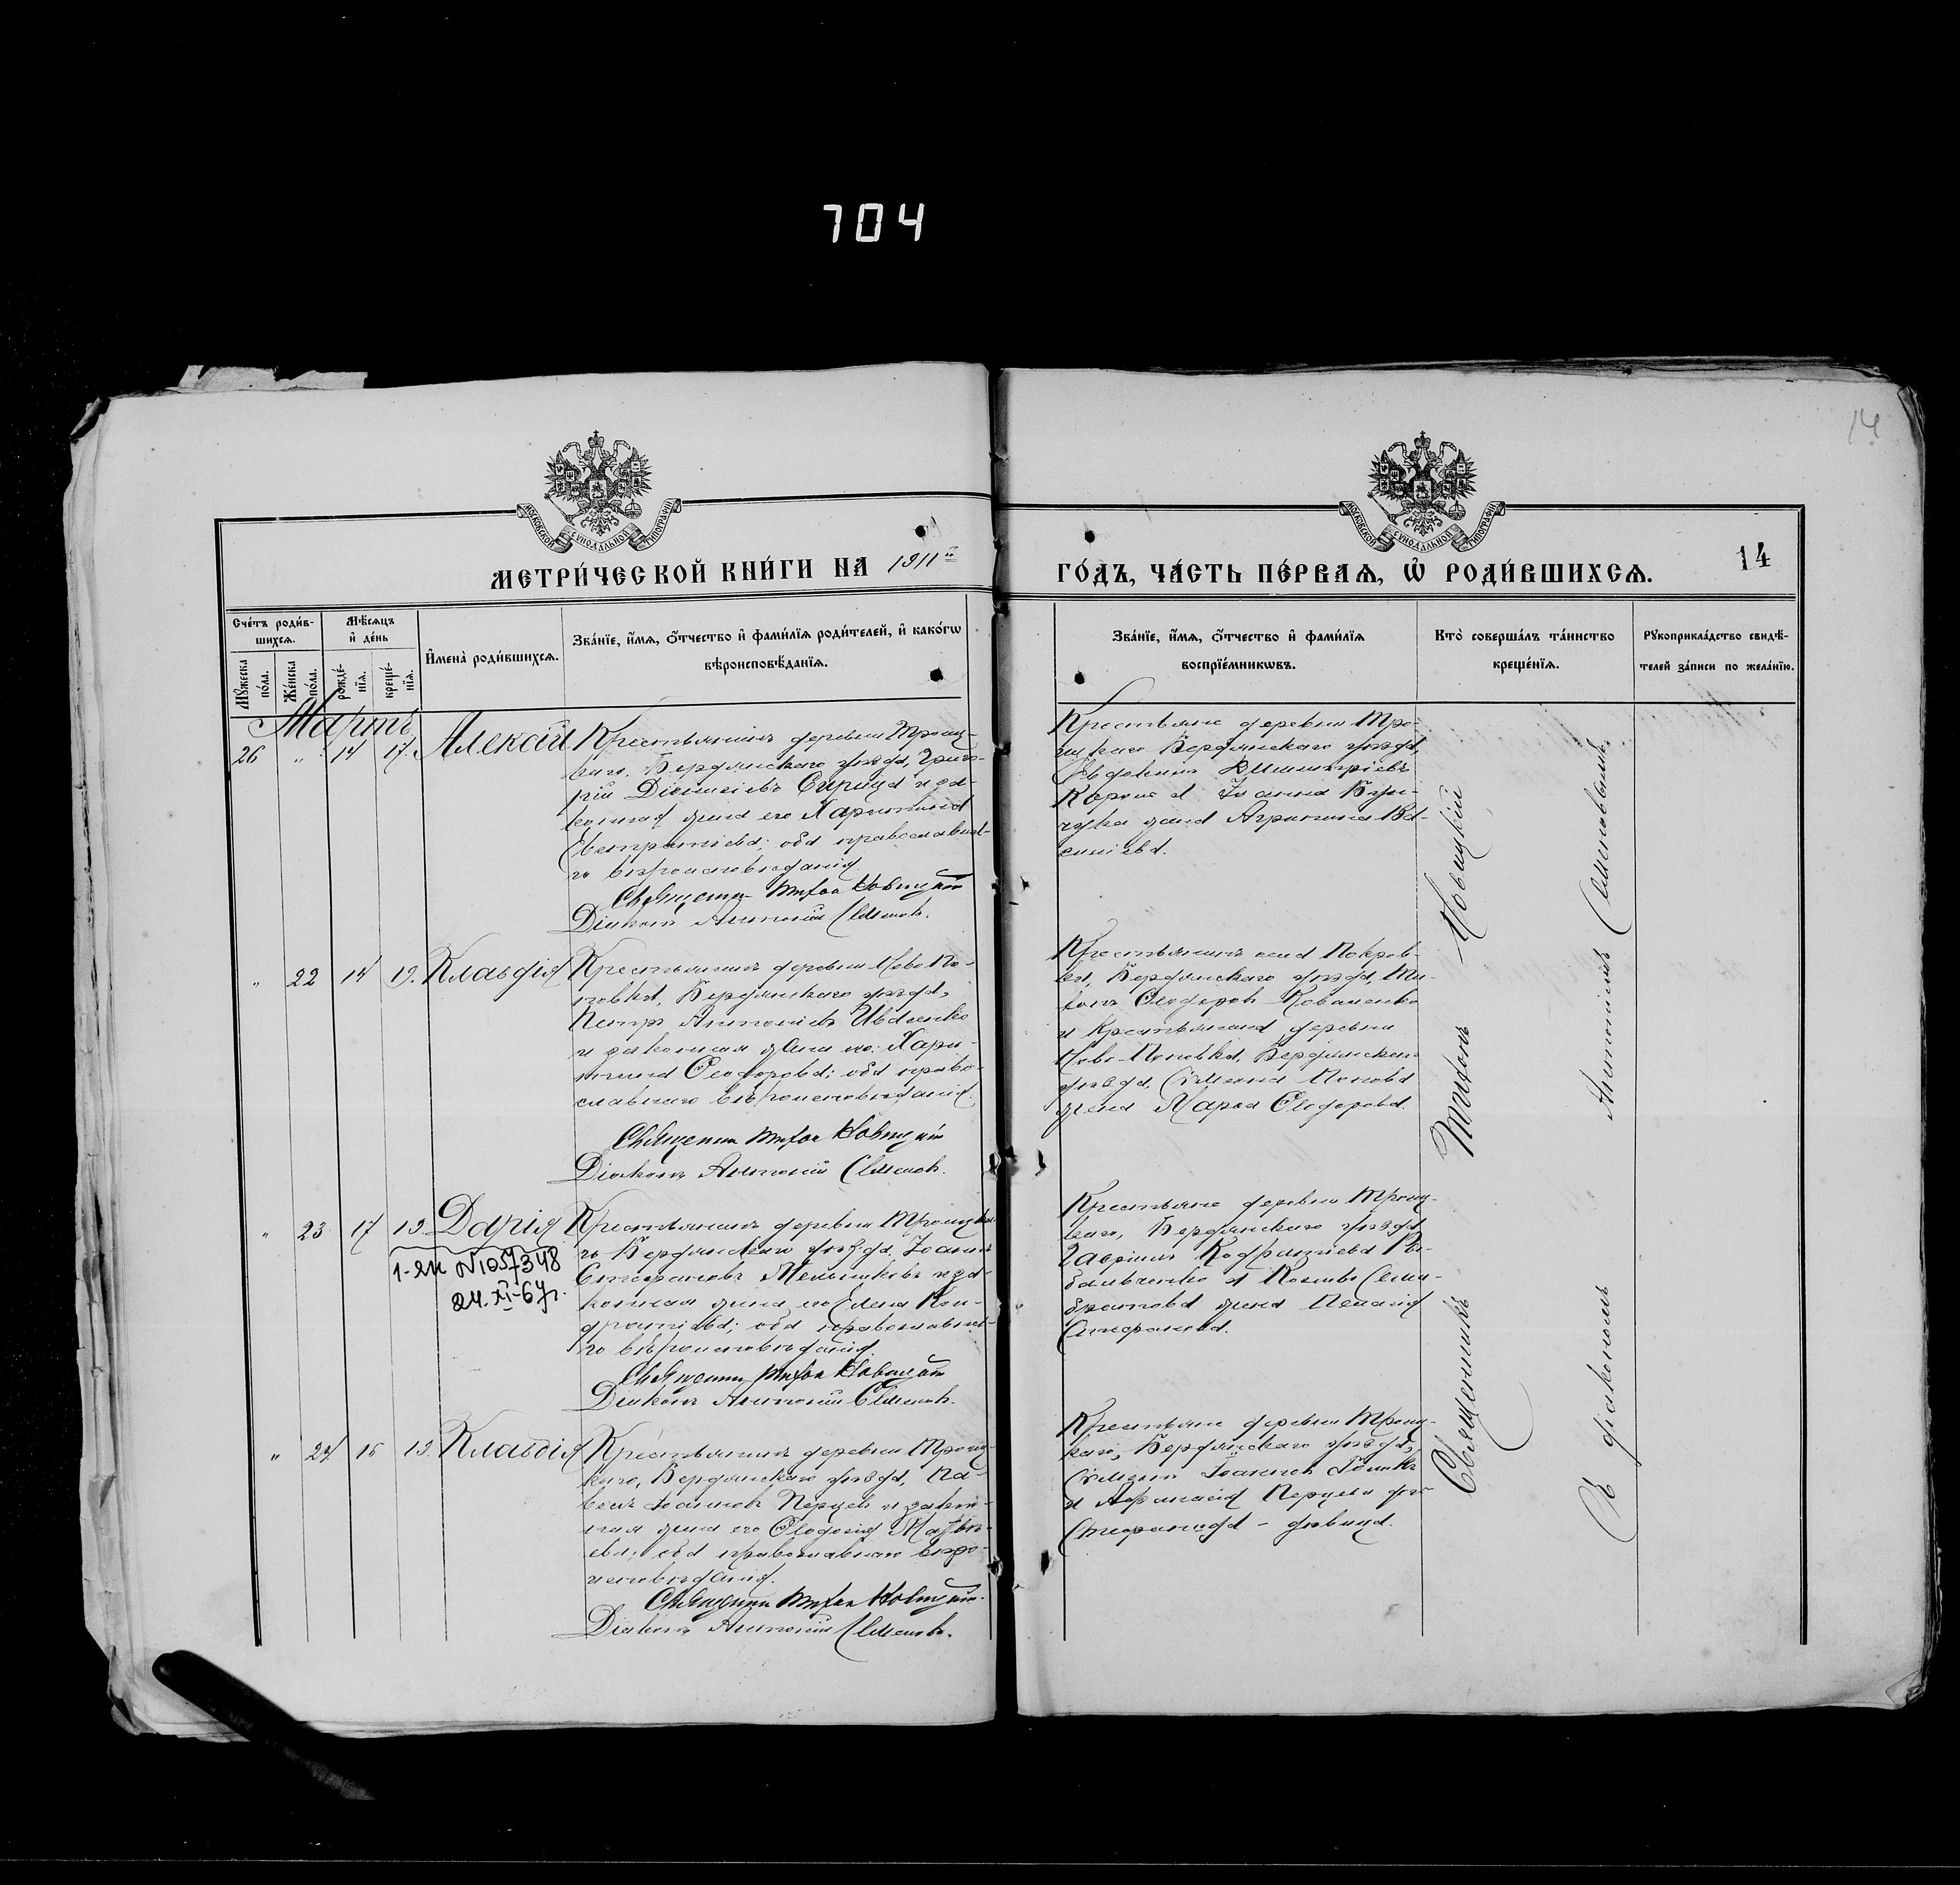 704
14
МОСКОВСКОЙ СУНОДАЛЬНОЙ ТИПОГРАФІИ
МОСКОВСКОЙ СУНОДАЛЬНОЙ ТИПОГРАФІИ
МЕТРИ́ЧЕСКОЙ КНИ́ГИ НА 1911й
ГО́ДЪ, ЧА́СТЬ ПЕ́РВАѦ, Ѽ РОДИ́ВШИХСѦ.
14
Сче́тъ роди́в-
шихсѧ.
Мꙋ́жеска по́ла.
Же́нска по́ла.
Мѣ́сѧцъ
и҆ де́нь
рожде́-
нїѧ.
креще́-
нїѧ.
И҆мена̀ роди́вшихсѧ.
Зва́нїе, и҆́мѧ, ѻ҆́тчество и҆ фами́лїѧ роди́телей, и҆ како́гѡ
вѣроисповѣ́данїѧ.
Зва́нїе, и҆́мѧ, ѻ҆́тчество и҆ фами́лїѧ
воспрїе́мникѡвъ.
Кто̀ соверша́лъ та́инство
креще́нїѧ.
Рꙋкоприкла́дство свидѣ́-
телей за́писи по жела́нїю.
Мартъ
26 " 14 17. Алексій
Крестьянинъ деревни Троиц-
каго, Бердянскаго уѣзда, Григо-
рій Діонисіевъ Сирица и за-
конная жена его Харитина
Евстратіева; оба православна-
го вѣроисповѣданія
Священникъ Тихон Новицкій
Діаконъ Антоній Семенов.
Крестьяне деревни Тро-
ицкаго Бердянскаго уѣзда,
Евдокимъ Димитріевъ
и Іоанна
жена Агрипина Ва-
силіева.
" 22 14 19. Клавдія
Крестьянинъ деревни Ново-По-
повки, Бердянскаго уѣзда,
Петръ Антоніевъ Авдеенко
и законная жена его: Хари-
тина Ѳеодорова; оба право-
славнаго вѣроисповѣданія.
Священник Тихон Новицкій
Діаконъ Антоній Семенов.
Крестьянинъ села Покров-
ки, Бердянскаго уѣзда, Ти-
хонъ Ѳеодоров Коваленко
и крестьянина деревни
Ново-Поповки, Бердянскаго
уѣзда, Сѵмеона Попова
жена Марѳа Ѳеодорова.
" 23 17 19. Дарія
1-ЯК №1057348
24.XI-67г.
Крестьянинъ деревни Троицка-
го Бердянскаго уѣзда, Іоаннъ
Стефановъ Мельниковъ и за-
конная жена его Елена Кон-
дратіева; оба православна-
го вѣроисповѣданія.
Священник Тихон Новицкій
Діаконъ Антоній Семенов.
Крестьяне деревни Троиц-
каго, Бердянскаго уѣзда
Гавріилъ
и Космы Семи-
братова жена Пелагія
Стефанова.
" 24 15 19. Клавдія
Крестьянинъ деревни Троиц-
каго, Бердянскаго уѣзда, Па-
велъ Іоанновъ Перцевъ и закон-
ная жена его Ѳеодосія Матвѣ-
ева; оба православнаго вѣро-
исповѣданія.
Священник Тихон Новицкій.
Діаконъ Антоній Семенов.
Крестьяне деревни Троиц-
каго, Бердянскаго уѣзда,
Сѵмеонъ Іоаннов
и Аѳанасія Перцева
Стефанида - дѣвица.
Священникъ Тихонъ Новицкій
Съ діакономъ Антоніемъ Семеновымъ.